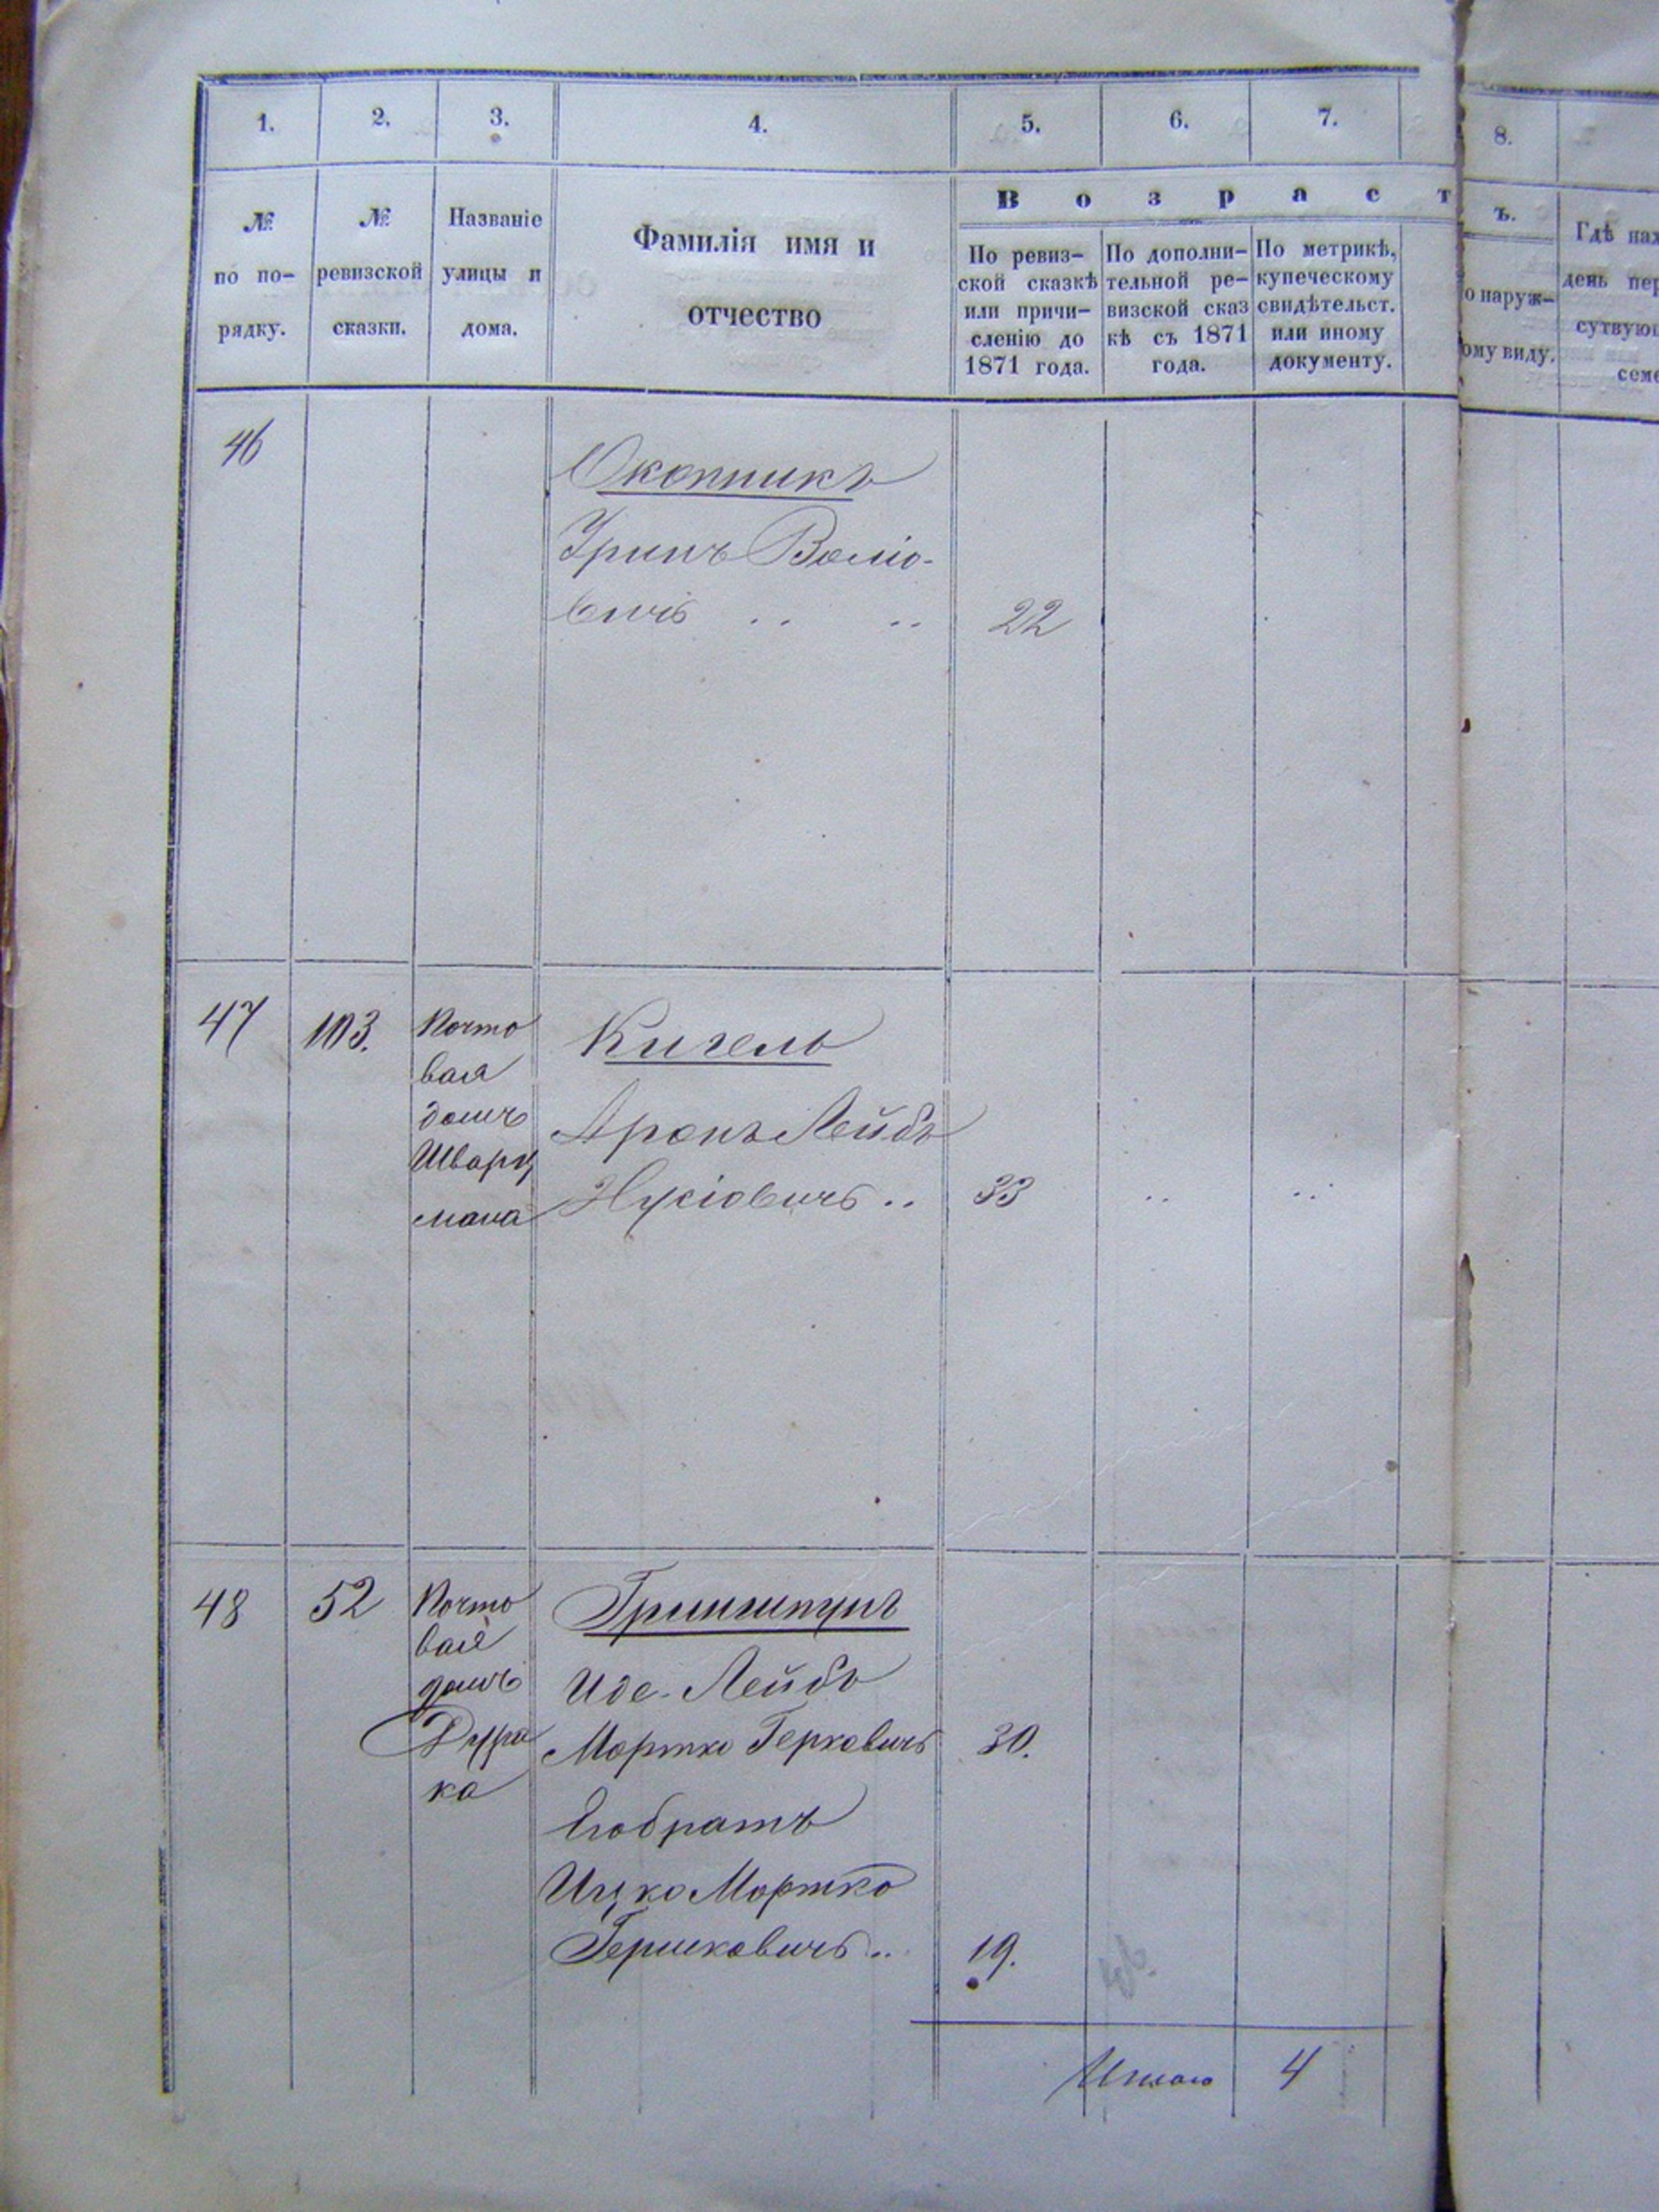 1. 2. 3. 4. 5. 6. 7. 8.
В о з р а с т ъ.
№ по по-рядку.
№ ревизской сказки.
Названіе улицы и дома.
Фамилія имя и отчество
По ревиз-
ской сказкѣ
или причи-
сленію до
1871 года.
По дополни-
тельной ре-
визской сказ
кѣ съ 1871
года.
По метрикѣ,
купеческому
свидѣтельст.
или иному
документу.
о наруж-
ому виду.
Гдѣ нах
день пер
сутвующ
семе
46
Окопникъ
Волю-
вичъ .. .. 22
47 103.
Почто
вая
домъ
Шварц
мана
Кигель
Аронъ Лейбъ
Нусіовичъ .. 33 .. ..
48 52
Почто
вая
домъ
Дура
ка
Гринштупъ
Иде-Лейбъ
Мортко Герковичъ 30.
Его братъ
Ицко Мортко
Гершковичъ .. 19.
Итого 4